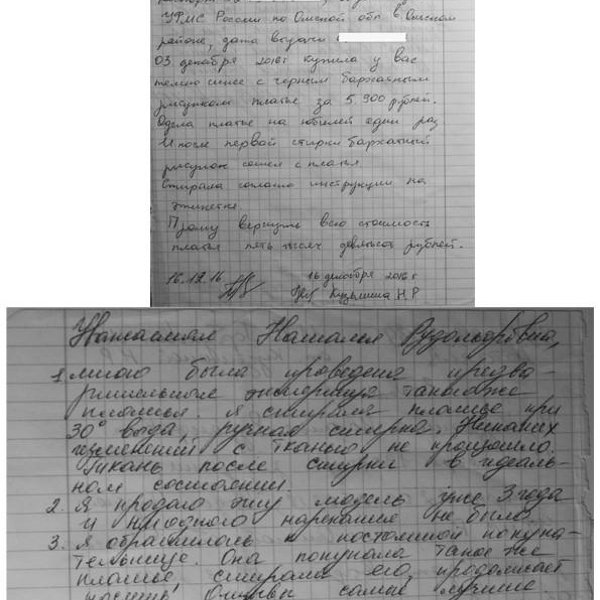 УФМС России по Омской обл в Омском
районе, дата выдачи
03 декабря 2016г купила у вас
темно синее с черным бархатным
рисунком платье за 5 900 рублей.
Одела платье на юбилей один раз
И после первой стирки бархатный
рисунок сошел с платья
Стирала согласно инструкции на
этикетке.
Прошу вернуть всю стоимость
платья пять тысяч девятьсот рублей.
16.12.16 16 декабря 2016 г
Кузьмина Н.Р
Уважаемая Наталья Рудольфовна,
1. мною была проведена предва-
рительная экспертиза такого же
платья. Я стирала платье при
30° вода, ручная стирка. Никаких
изменений с тканью не произошло.
Ткань после стирки в идеаль-
ном состоянии.
2. Я продаю эту модель уже 3 года
и ни одного нарекания не было.
3. Я обратилась к постоянной покупа-
тельнице. Она покупала такое же
платье, стирала его, продолжает
носить. Отзывы самые лучшие.